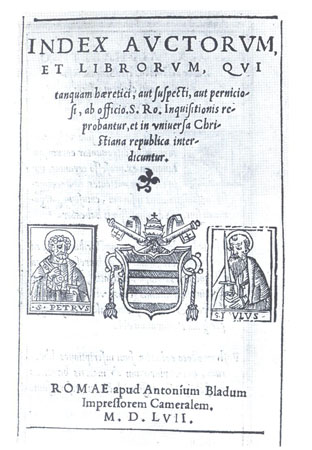 INDEX AVCTORVM,
ET LIBRORVM, QVI
tanquam hæretici, aut suspecti, aut pernicio-
si, ab officio. S. Ro. Inquisitionis re-
probantur, et in vniuersa Chri-
stiana republica inter-
dicuntur.
S · PETRVS
S · P VLVS
ROMAE apud Antonium Bladum
Impressorem Cameralem.
M. D. LVII.